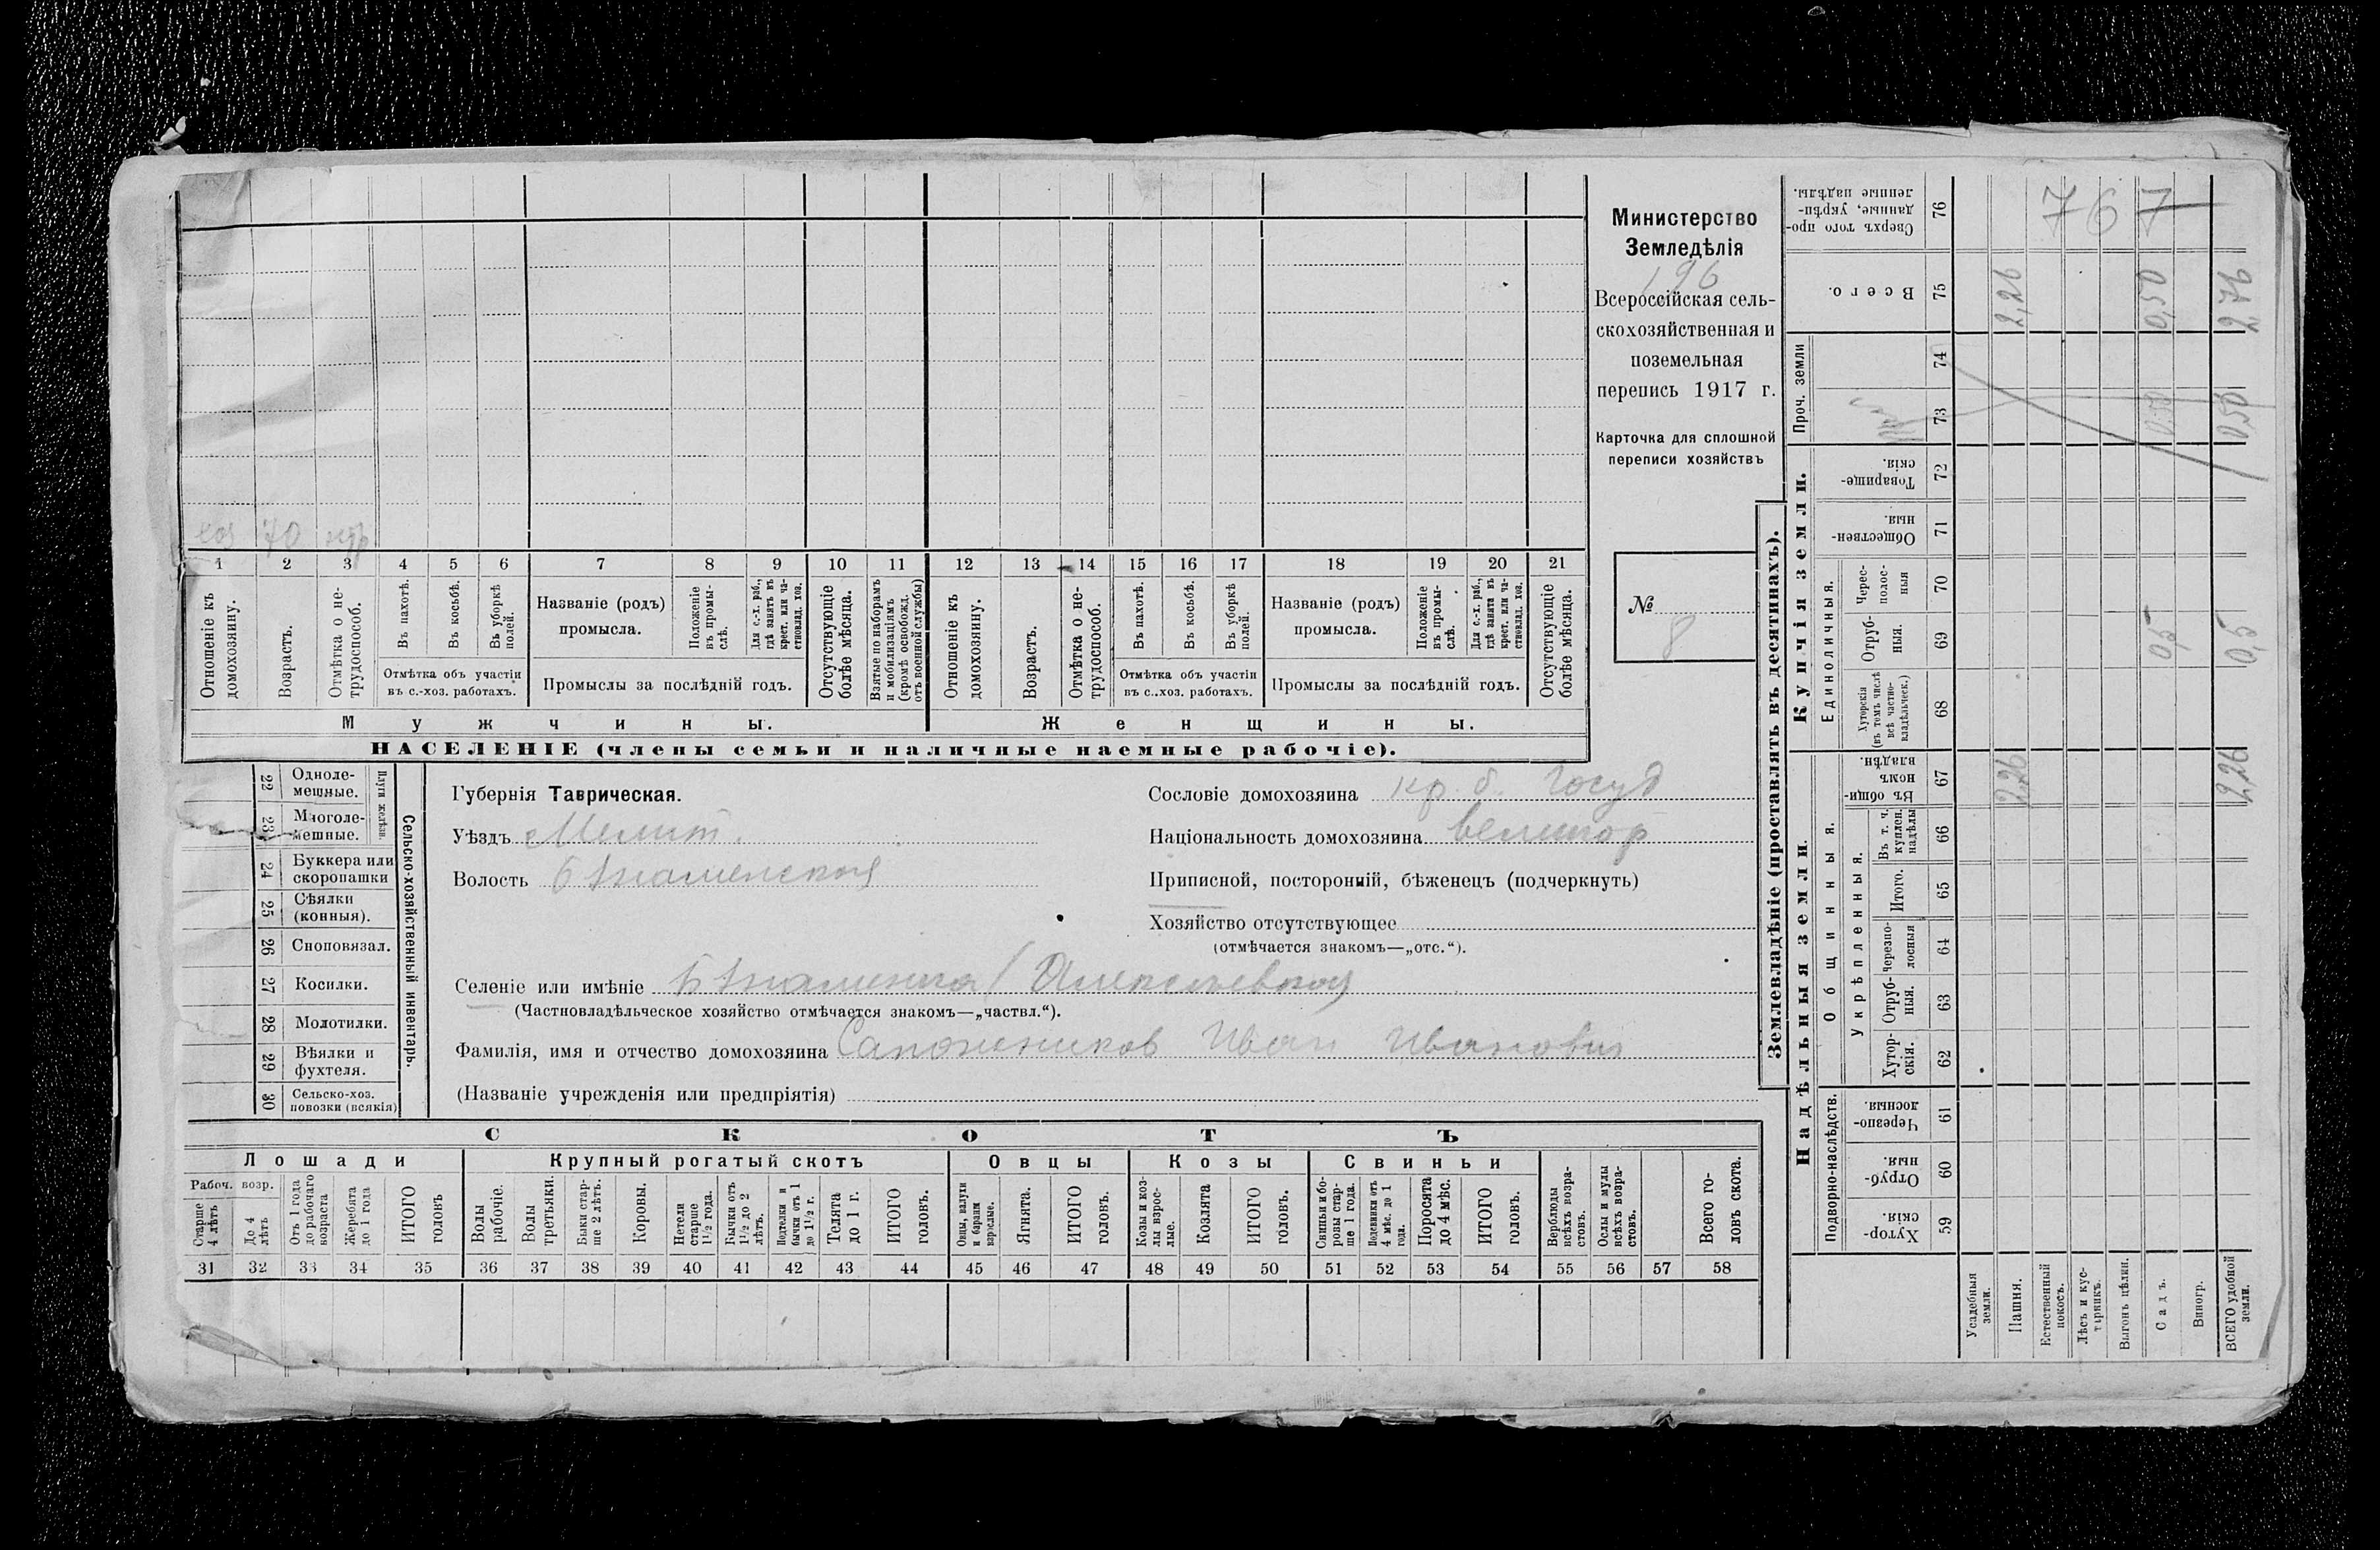 хоз 70 нтр
1 2 3 4 5 6 7 8 9 10 11 12 13 14 15 16 17 18 19 20 21
Отношеніе къ домохозяину.
Возрастъ.
Отмѣтка о нетрудоспособ.
Въ пахотѣ.
Въ косьбѣ.
Въ уборкѣ полей.
Отмѣтка объ участіи
въ с.-хоз. работахъ.
Названіе (родъ)
промысла.
Положеніе въ промыслѣ.
Для с.-х. раб., гдѣ занятъ въ крест. или частновлад. хоз.
Промыслы за послѣдній годъ.
Отсутствующіе болѣе мѣсяца.
Взятые по наборамъ и мобилизаціямъ (кромѣ освобожд. отъ военной службы)
Отношеніе къ домохозяину.
Возрастъ.
Отмѣтка о нетрудоспособ.
Въ пахотѣ.
Въ косьбѣ.
Въ уборкѣ полей.
Отмѣтка объ участіи
въ с..хоз. работахъ.
Названіе (родъ)
промысла.
Положеніе въ промыслѣ.
Для с.-х. раб., гдѣ занята въ крест. или частновлад. хоз.
Промыслы за послѣдній годъ.
Отсутствующіе болѣе мѣсяца.
Мужчины.
Женщины.
НАСЕЛЕНІЕ (члены семьи и наличные наемные рабочіе).
Министерство
Земледѣлія
196
Всероссійская сель-
скохозяйственная и
поземельная
перепись 1917 г.
Карточка для сплошной
переписи хозяйствъ
№
8
22 Одноле-
мешные.
23 Многоле-
мешные.
Плуги желѣзн.
24 Буккера или
скоропашки
25 Сѣялки
(конныя).
26 Сноповязал.
27 Косилки.
28 Молотилки.
29 Вѣялки и
фухтеля.
30 Сельско-хоз.
повозки (всякія)
Сельско-хозяйственный инвентарь.
Губернія Таврическая.
Уѣздъ Мелит.
Волость Б Знаменская
Сословіе домохозяина кр. б. госуд
Національность домохозяина великор
Приписной, посторонній, бѣженецъ (подчеркнуть)
Хозяйство отсутствующее
(отмѣчается знакомъ—„отс.“).
Селеніе или имѣніе Б Знаменка / Алексеевкая
(Частновладѣльческое хозяйство отмѣчается знакомъ—„частвл.“).
Фамилія, имя и отчество домохозяина Сапожников Иван Иванович
(Названіе учрежденія или предпріятія)
СКОТЪ
Лошади
Крупный рогатый скотъ
Овцы
Козы
Свиньи
Рабоч. возр.
Старше 4 лѣтъ
До 4 лѣтъ
Отъ 1 года до рабочаго возраста
Жеребята до 1 года
ИТОГО головъ
Волы рабочіе.
Волы третьяки.
Быки старше 2 лѣтъ.
Коровы.
Нетели старше 1½ года.
Бычки отъ 1½ до 2 лѣтъ.
Подтелки и бычки отъ 1 до 1½ г.
Телята до 1 г.
ИТОГО головъ.
Овцы, валухи и бараны взрослые.
Ягнята.
ИТОГО головъ.
Козы и козлы взрослые.
Козлята
ИТОГО головъ.
Свиньи и боровы старше 1 года.
Подсвинки отъ 4 мѣс. до 1 года.
Поросята до 4 мѣс.
ИТОГО головъ.
Верблюды всѣхъ возрастовъ.
Ослы и мулы всѣхъ возрастовъ.
Всего головъ скота.
31 32 33 34 35 36 37 38 39 40 41 42 43 44 45 46 47 48 49 50 51 52 53 54 55 56 57 58
Землевладѣніе (проставлять въ десятинахъ).
Надѣльныя земли.
Купчія земли.
Проч. земли
Подворно-наслѣдств.
Общинныя.
Укрѣпленныя.
Единоличныя.
Хуторскія. 59
Отрубныя. 60
Черезполосныя. 61
Хуторскія. 62
Отрубныя. 63
Черезполосныя 64
Итого. 65
Въ т. ч. куплен. надѣлы 66
Въ общинномъ владѣн. 67
Хуторскія (въ томъ числѣ всѣ частновладѣльческ.) 68
Отрубныя. 69
Череcполосныя 70
Общественныя. 71
Товарищескія. 72
73
74
Всего. 75
Сверхъ того проданные, укрѣпленные надѣлы. 76
Усадебныя земли.
Пашня. 2,26 2,26
Естественный покосъ.
Лѣсъ и кустарникъ.
Выгонъ цѣлин.
Садъ. 0,5 0,50 0,50
Виногр.
ВСЕГО удобной земли. 2,26 0,5 0,50 2,76
7 6 7